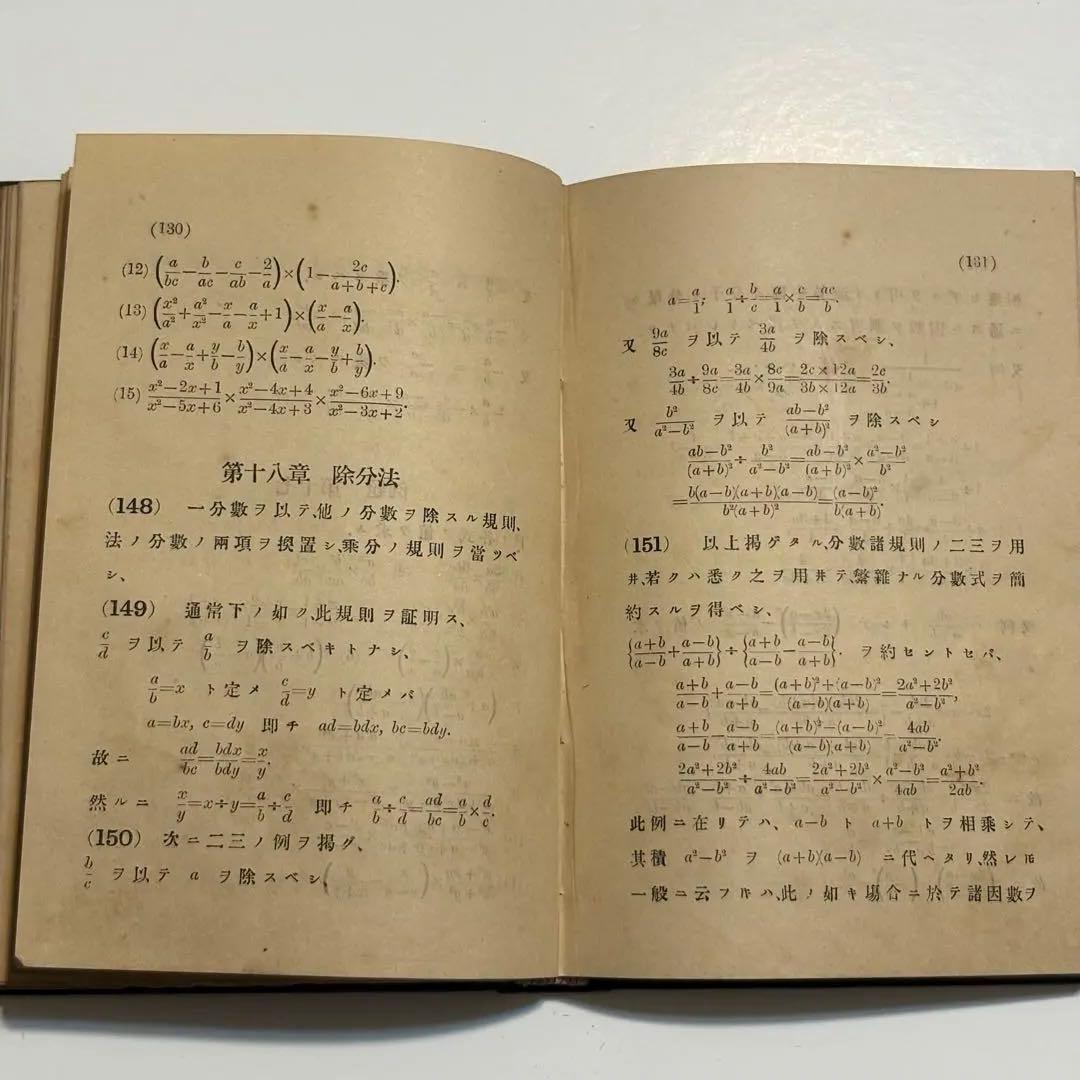 (130)
(12) (a/bc − b/ac − c/ab − 2/a) × (1 − 2c/(a+b+c)).
(13) (x²/a² + a²/x² − x/a − a/x + 1) × (x/a − a/x).
(14) (x/a − a/x + y/b − b/y) × (x/a − a/x − y/b + b/y).
(15) (x²−2x+1)/(x²−5x+6) × (x²−4x+4)/(x²−4x+3) × (x²−6x+9)/(x²−3x+2).
第十八章 除分法
(148) 一分數ヲ以テ、他ノ分數ヲ除スル規則、
法ノ分數ノ兩項ヲ換置シ、乘分ノ規則ヲ當ツベ
シ、
(149) 通常下ノ如ク、此規則ヲ証明ス、
c/d ヲ以テ a/b ヲ除スベキトナシ、
a/b=x ト定メ c/d=y ト定メバ
a=bx, c=dy 即チ ad=bdx, bc=bdy.
故ニ ad/bc = bdx/bdy = x/y.
然ルニ x/y = x÷y = a/b ÷ c/d 即チ a/b ÷ c/d = ad/bc = a/b × d/c.
(150) 次ニ二三ノ例ヲ揭グ、
b/c ヲ以テ a ヲ除スベシ、
(131)
a = a/1; a/1 ÷ b/c = a/1 × c/b = ac/b.
又 9a/8c ヲ以テ 3a/4b ヲ除スベシ、
3a/4b ÷ 9a/8c = 3a/4b × 8c/9a = (2c×12a)/(3b×12a) = 2c/3b.
又 b²/(a²−b²) ヲ以テ (ab−b²)/(a+b)² ヲ除スベシ
(ab−b²)/(a+b)² ÷ b²/(a²−b²) = (ab−b²)/(a+b)² × (a²−b²)/b²
= b(a−b)(a+b)(a−b)/b²(a+b)² = (a−b)²/b(a+b).
(151) 以上揭ゲタル、分數諸規則ノ二三ヲ用
井、若クハ悉ク之ヲ用井テ、繁雜ナル分數式ヲ簡
約スルヲ得ベシ、
{(a+b)/(a−b) + (a−b)/(a+b)} ÷ {(a+b)/(a−b) − (a−b)/(a+b)}. ヲ約セントセバ、
(a+b)/(a−b) + (a−b)/(a+b) = ((a+b)²+(a−b)²)/(a−b)(a+b) = (2a²+2b²)/(a²−b²),
(a+b)/(a−b) − (a−b)/(a+b) = ((a+b)²−(a−b)²)/(a−b)(a+b) = 4ab/(a²−b²).
(2a²+2b²)/(a²−b²) ÷ 4ab/(a²−b²) = (2a²+2b²)/(a²−b²) × (a²−b²)/4ab = (a²+b²)/2ab.
此例ニ在リテハ、a−b ト a+b トヲ相乘シテ、
其積 a²−b² ヲ (a+b)(a−b) ニ代ヘタリ、然レ𪜈
一般ニ云フ𪜈ハ、此ノ如キ塲合ニ於テ諸因數ヲ